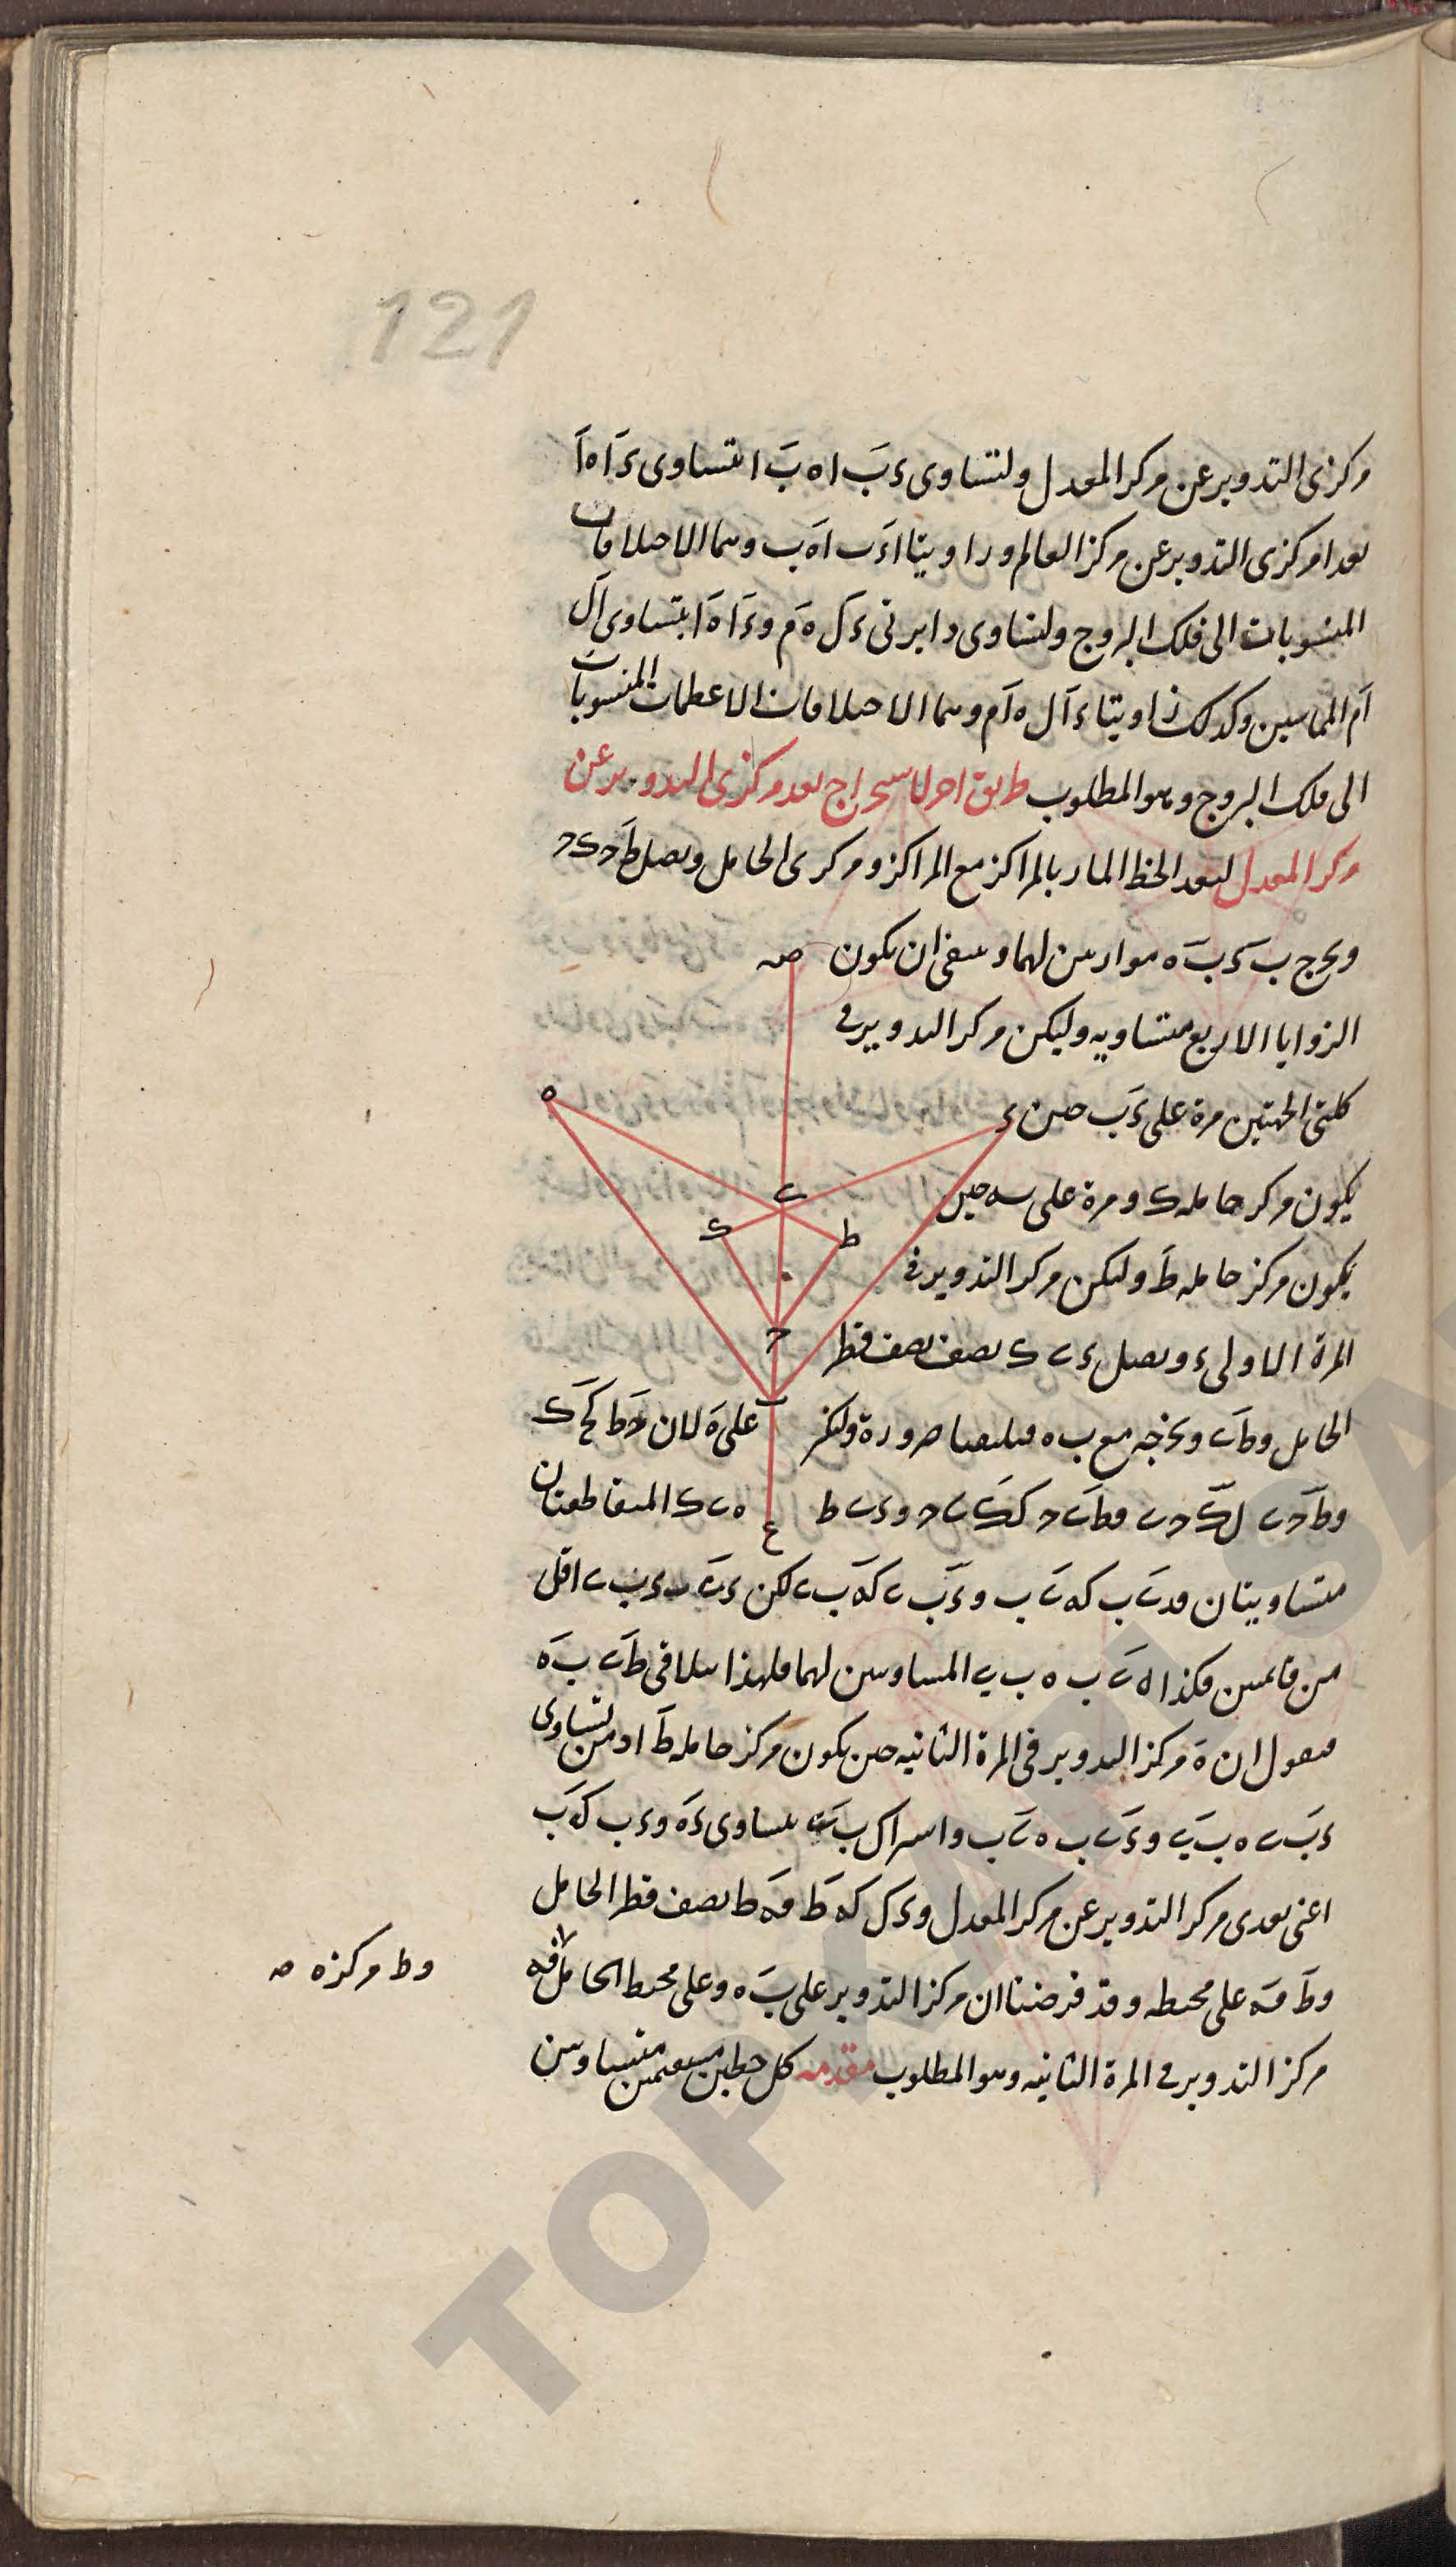 121
مركزى التدوير عن مركز المعدل ولتساوى ء ب ا ه ب ا يتساوى ء ا ه ا
بعدا مركزى التدوير عن مركز العالم وزاويتا ا ء ب ا ه ب وهما الاختلافان
المنسوبان الى فلك البروج ولتساوى دايرتى ء ل ه م و ء ا ه ا يتساوى ا ل
ا م المماسين وكذلك زاويتا ء ا ل ه ا م وهما الاختلافان الاعظمان المنسوبان
الى فلك البروج وهو المطلوب طريق اخر لاستخراج بعد مركزى التدوير عن
مركز المعدل لنعد الخط المار بالمراكز مع المراكز ومركزى الحامل ونصل ط ح ك ح
ونخرج ب ء ب ه موازيين لهما وينبغى ان يكون
الزوايا الاربع متساويه وليكن مركز التدوير فى
كلتى الجهتين مرة على ء ب حين
يكون مركز حامله ك ومرة على ب ه حين
يكون مركز حامله ط وليكن مركز التدوير فى
المرة الاولى ء ونصل ء ى ك نصف قطر
الحامل و ط ى ونخرجه مع ب ه فيلتقيا ضرورة وليكن على ه لان ح ط ك ح ك
و ط ح ى ك ح ى فط ى ح ك ك ى ح و ء ى ط ه ى ك المتقاطعتان
متساويتان ف ء ى ب ك ه ى ب و ء ب ى ك ه ب ى لكن ء ى ب ء ب ى اقل
من قائمتين فكذا ه ى ب ه ب ى المساويين لهما فلهذا يتلاقى ط ى ب ه
فنقول ان ه مركز التدوير فى المرة الثانيه حين يكون مركز حامله ط اذ من تساوى
ء ب ى ه ب ى و ء ى ب ه ى ب واشتراك ب ى يتساوى ء ه و ء ب ك ه ب
اعنى بعدى مركز التدوير عن مركز المعدل و ء ك ك ه ط ف ه ط نصف قطر الحامل
و ط ف ه على محيطه وقد فرضنا ان مركز التدوير على ب ه وعلى محيط الحامل ف ه
مركز التدوير فى المرة الثانيه وهو المطلوب مقدمه كل خطين مستقيمين متساويين
وط مركزه
ص
ه
ء
ى
ك
ط
ح
ب
ع
TOPKAPI SA